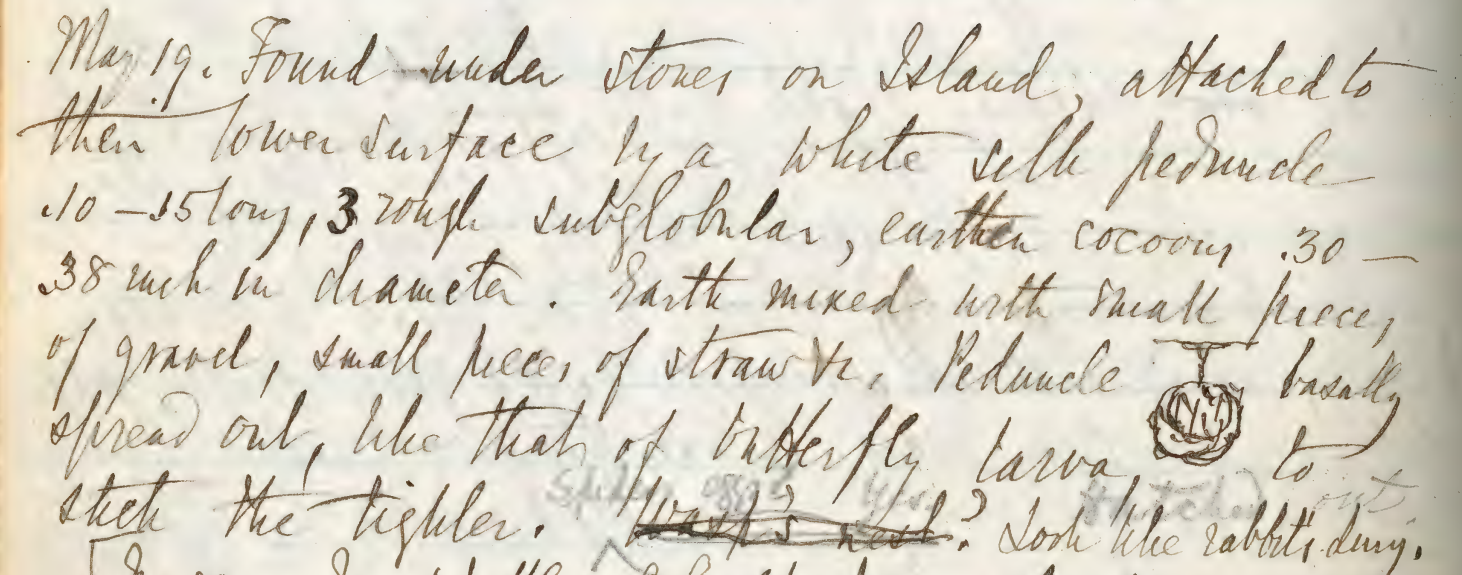 May 19. Found under stones on Island, attached to
their lower surface by a white silk peduncle
.10 – .15 long, 3 rough subglobular, earthen cocoons .30 –
.38 inch in diameter. Earth mixed with small pieces
of gravel, small pieces of straw &c. Peduncle basally
spread out, like that of butterfly larva to
Spider eggs? Yes. Hatched out
stick the tighter. Wasp's nest? Look like rabbit's dung.